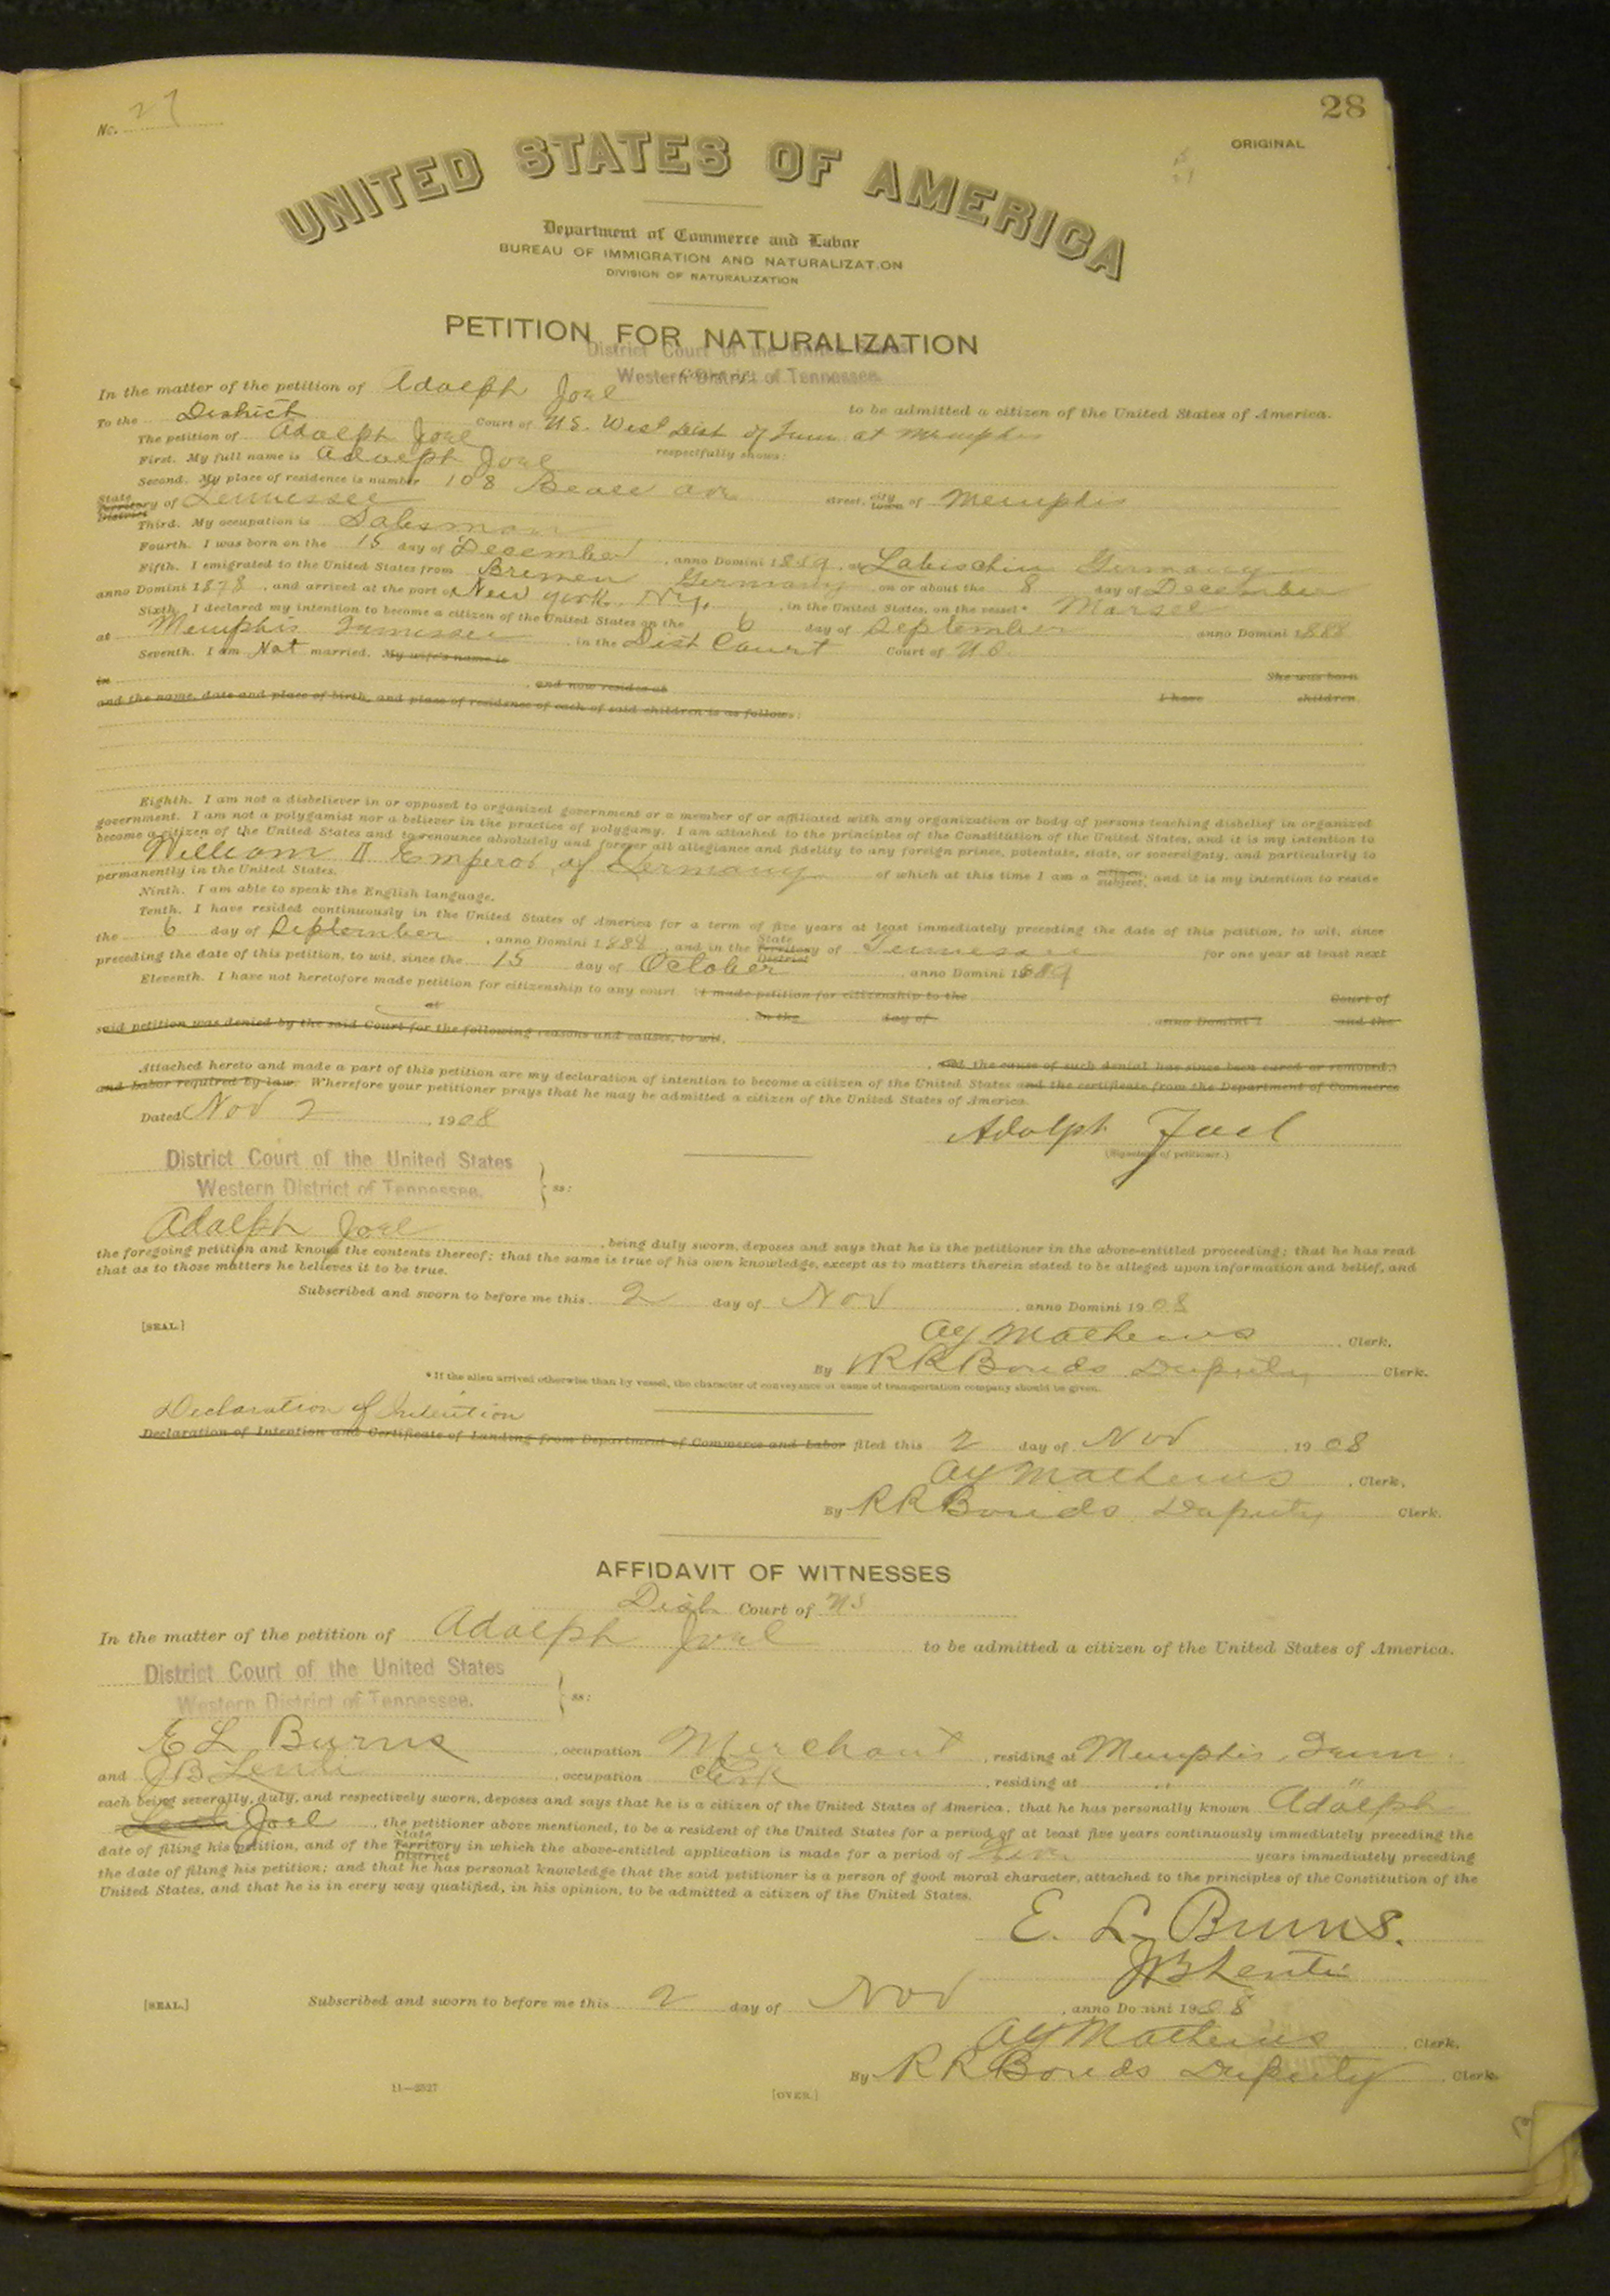 No. 27
28
ORIGINAL
UNITED STATES OF AMERICA
Department of Commerce and Labor
BUREAU OF IMMIGRATION AND NATURALIZATION
DIVISION OF NATURALIZATION
PETITION FOR NATURALIZATION
District Court of the United States
Western District of Tennessee.
In the matter of the petition of Adolph Joel to be admitted a citizen of the United States of America.
To the District Court of U.S. West Dist of Tenn at Memphis
The petition of Adolph Joel respectfully shows:
First. My full name is Adolph Joel
Second. My place of residence is number 108 Beale ave street, city town of Memphis
State Territory District of Tennessee
Third. My occupation is Salesman
Fourth. I was born on the 15 day of December, anno Domini 1859, at Labischin Germany
Fifth. I emigrated to the United States from Bremen Germany on or about the 8 day of December
anno Domini 1878, and arrived at the port of New York, N.Y., in the United States, on the vessel* Mosel
Sixth. I declared my intention to become a citizen of the United States on the 6 day of September anno Domini 1888
at Memphis Tennessee in the Dist Court Court of U.S.
Seventh. I am Not married. My wife's name is
She was born
in , and now resides at
I have children
and the name, date and place of birth, and place of residence of each of said children is as follows:
Eighth. I am not a disbeliever in or opposed to organized government or a member of or affiliated with any organization or body of persons teaching disbelief in organized
government. I am not a polygamist nor a believer in the practice of polygamy. I am attached to the principles of the Constitution of the United States, and it is my intention to
become a citizen of the United States and to renounce absolutely and forever all allegiance and fidelity to any foreign prince, potentate, state, or sovereignty, and particularly to
William II Emperor of Germany of which at this time I am a citizen subject, and it is my intention to reside
permanently in the United States.
Ninth. I am able to speak the English language.
Tenth. I have resided continuously in the United States of America for a term of five years at least immediately preceding the date of this petition, to wit, since
the 6 day of September, anno Domini 1888, and in the State Territory District of Tennessee for one year at least next
preceding the date of this petition, to wit, since the 15 day of October, anno Domini 1889
Eleventh. I have not heretofore made petition for citizenship to any court. I made petition for citizenship to the Court of
at In the day of anno Domini 1 and the
said petition was denied by the said Court for the following reasons and causes, to wit,
and the cause of such denial has since been cured or removed.
Attached hereto and made a part of this petition are my declaration of intention to become a citizen of the United States and the certificate from the Department of Commerce
and Labor required by law. Wherefore your petitioner prays that he may be admitted a citizen of the United States of America.
Dated Nov 2, 1908
Adolph Joel
(Signature of petitioner.)
District Court of the United States
Western District of Tennessee. ss:
Adolph Joel, being duly sworn, deposes and says that he is the petitioner in the above-entitled proceeding; that he has read
the foregoing petition and knows the contents thereof; that the same is true of his own knowledge, except as to matters therein stated to be alleged upon information and belief, and
that as to those matters he believes it to be true.
Subscribed and sworn to before me this 2 day of Nov, anno Domini 1908
[SEAL.]
AY Mathews, Clerk.
By RR Bonds Deputy Clerk.
*If the alien arrived otherwise than by vessel, the character of conveyance or name of transportation company should be given.
Declaration of Intention
Declaration of Intention and Certificate of Landing from Department of Commerce and Labor filed this 2 day of Nov 1908
AY Mathews, Clerk.
By RR Bonds Deputy Clerk.
AFFIDAVIT OF WITNESSES
Dist Court of US
In the matter of the petition of Adolph Joel to be admitted a citizen of the United States of America.
District Court of the United States
Western District of Tennessee. ss:
E L Burns, occupation Merchant, residing at Memphis, Tenn.
and JB Lenti, occupation Clerk, residing at " "
each being severally, duly, and respectively sworn, deposes and says that he is a citizen of the United States of America; that he has personally known Adolph
Joel, the petitioner above mentioned, to be a resident of the United States for a period of at least five years continuously immediately preceding the
date of filing his petition, and of the State Territory District in which the above-entitled application is made for a period of five years immediately preceding
the date of filing his petition; and that he has personal knowledge that the said petitioner is a person of good moral character, attached to the principles of the Constitution of the
United States, and that he is in every way qualified, in his opinion, to be admitted a citizen of the United States.
E. L. Burns.
JB Lenti
[SEAL.] Subscribed and sworn to before me this 2 day of Nov, anno Domini 1908
AY Mathews Clerk.
By RR Bonds Deputy, Clerk.
11—2527
[OVER.]